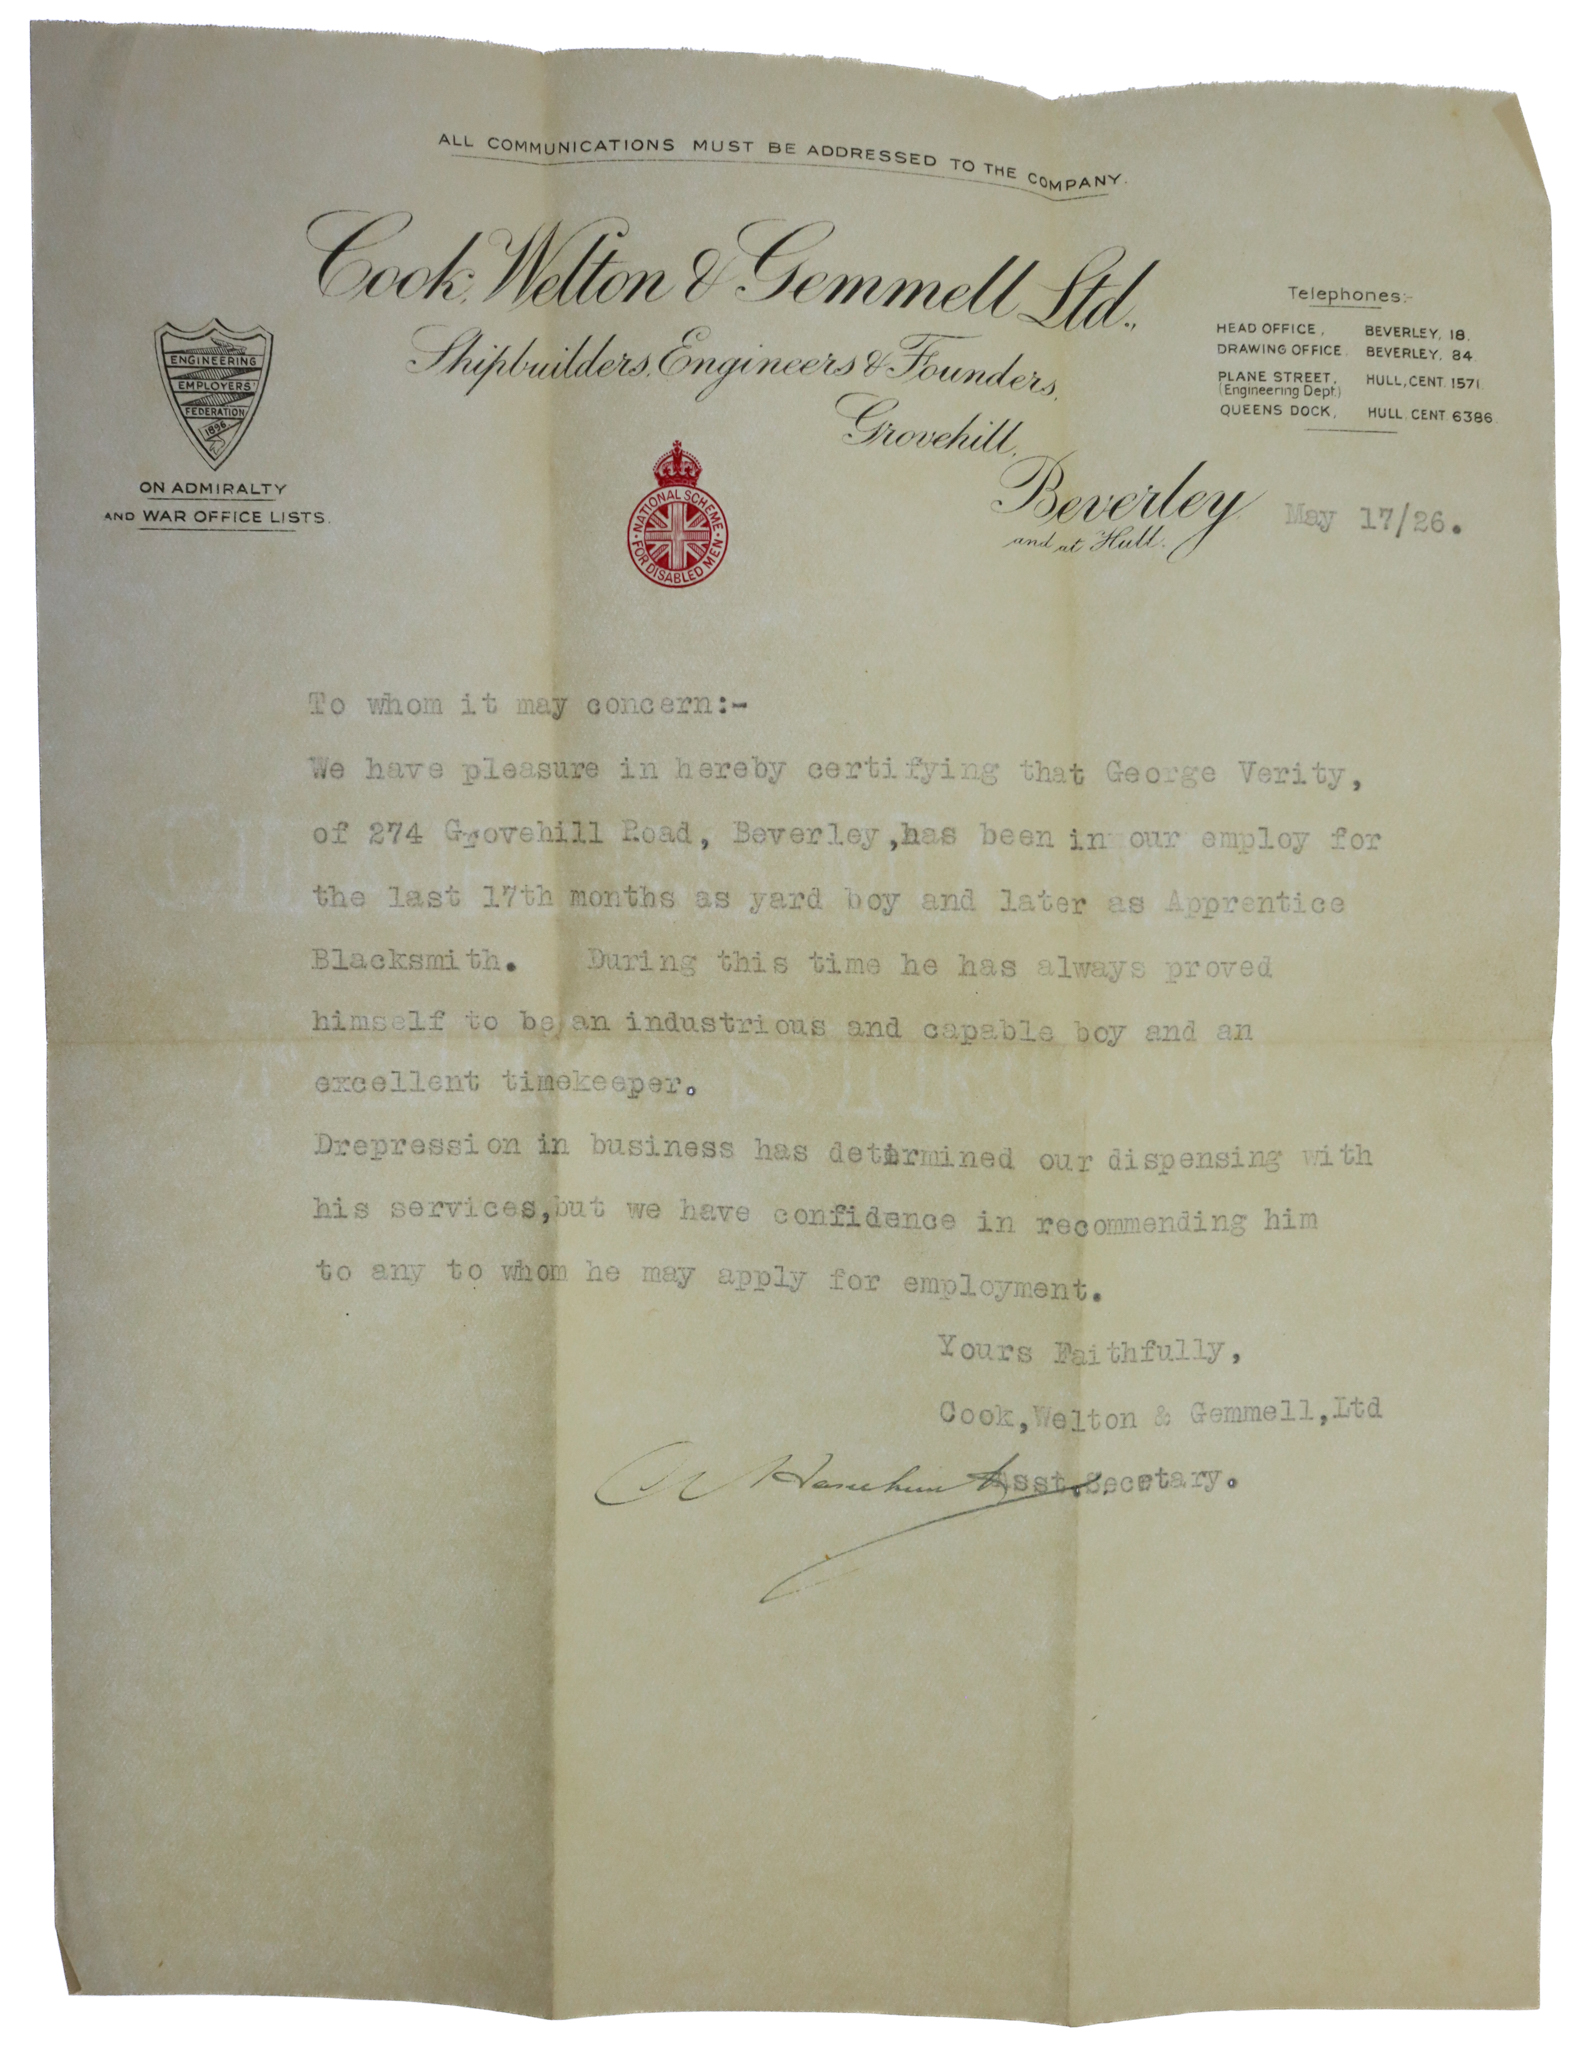 ALL COMMUNICATIONS MUST BE ADDRESSED TO THE COMPANY.
Cook, Welton & Gemmell Ltd.,
Shipbuilders, Engineers & Founders,
Grovehill,
Beverley
and at Hull.
May 17/26.
Telephones:-
HEAD OFFICE, BEVERLEY, 18.
DRAWING OFFICE. BEVERLEY, 84.
PLANE STREET, HULL, CENT. 1571.
(Engineering Dept.)
QUEENS DOCK, HULL, CENT. 6386.
ENGINEERING
EMPLOYERS'
FEDERATION
1896
ON ADMIRALTY
AND WAR OFFICE LISTS.
NATIONAL SCHEME
FOR DISABLED MEN
To whom it may concern:-
We have pleasure in hereby certifying that George Verity,
of 274 Grovehill Road, Beverley,has been in our employ for
the last 17th months as yard boy and later as Apprentice
Blacksmith. During this time he has always proved
himself to be an industrious and capable boy and an
excellent timekeeper.
Drepression in business has determined our dispensing with
his services,but we have confidence in recommending him
to any to whom he may apply for employment.
Yours Faithfully,
Cook,Welton & Gemmell,Ltd
Asst.Secetary.